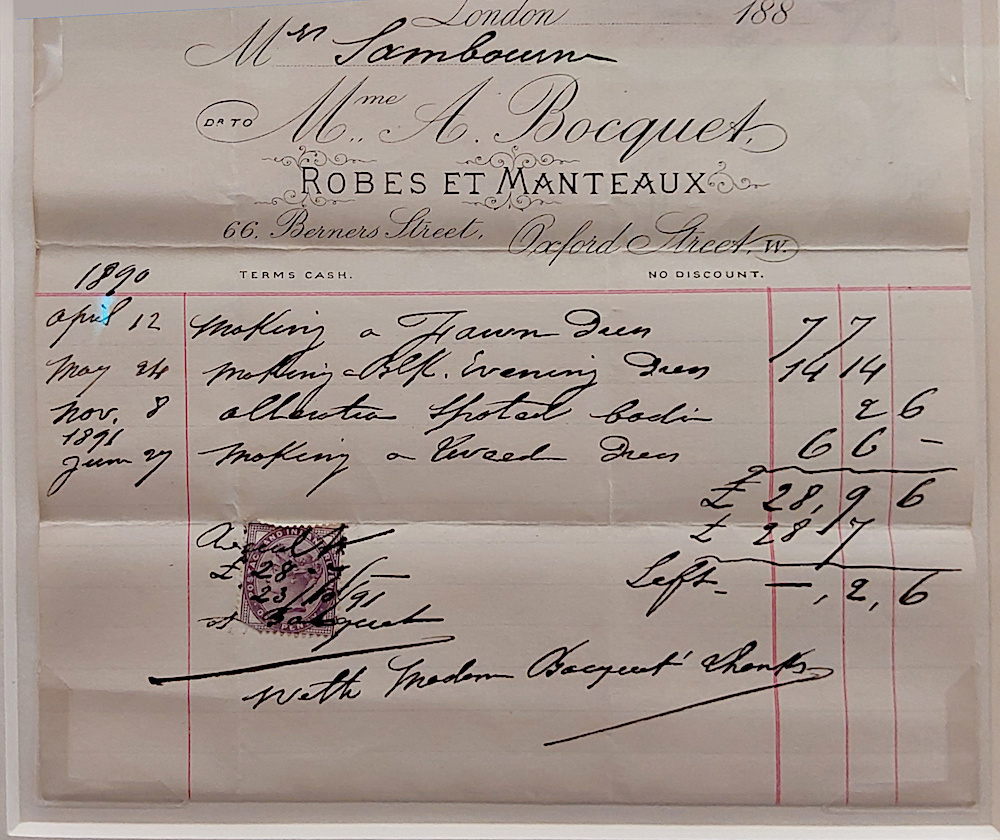 London 188
Mrs Sambourn
DR TO Mme A. Bocquet,
ROBES ET MANTEAUX
66, Berners Street, Oxford Street, W.
1890 TERMS CASH. NO DISCOUNT.
April 12 Making a Fawn Dress 7 7
May 24 Making a Blk. Evening Dress 14 14
Nov. 8 Alteration Spoted bodice 2 6
1891
June 27 Making a Tweed Dress 6 6 –
£ 28, 9 6
£ 28 7
Left – —, 2, 6
£ 28 - 7/–
23/10/91
Bocquet
With Madam Bocquet' thanks